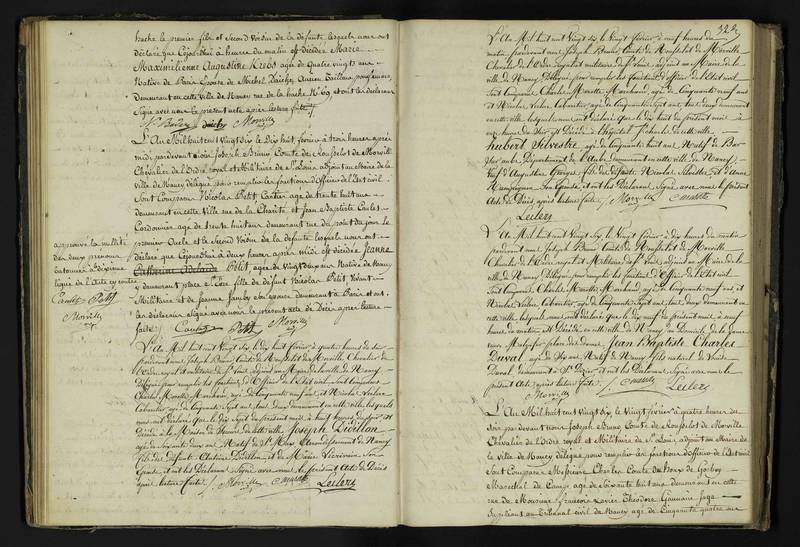 hache le premier fils et Second Voisin de la défunte lesquels nous ont
déclaré que Cejourd'hui à heure du matin est décédée Marie
Maximilienne Augustine Krebs agée de Quatre vingts ans
Native de Paris Epouse de Michel ancien Tailleur
demeurant en cette ville de Nancy rue de la hache N° 69 et ont les déclarans
Signé avec nous le présent acte après lecture faite
Morville
L'An Mil huit cent Vingt Six le Dix huit février à trois heures après
midi pardevant nous Joseph Bruno Comte de Rousselot de Morville
Chevalier de l'Ordre royal et Militaire de St Louis adjoint au Maire de la
ville de Nancy délégué pour remplir les fonctions d'Officier de l'Etat civil
Sont Comparus Nicolas Petit Cartier agé de trente huit ans
demeurant en cette Ville rue de la Charité et Jean Baptiste Caules
Cordonnier agé de trente huit ans demeurant rue du point du jour le
premier Oncle et le Second Voisin de la défunte lesquels nous ont
déclaré que Cejourd'hui à deux heures après midi est décédée Jeanne
Catherine Adelaïde Petit, agée de Vingt deux ans Native de Nancy
demeurant place fille de défunt Nicolas Petit Vivant
Militaire et de Jeanne demeurant à Paris et ont
les déclarans Signé avec nous le présent acte de Décès après lecture
faite
Petit Morville
approuvé la nullité
des deux prénoms
batonnés à dixième
ligne de l'Acte ci contre
Petit
Morville
L'An Mil huit cent Vingt Six le Dix huit février à quatre heures du soir
pardevant nous Joseph Bruno Comte de Rousselot de Morville Chevalier de
l'Ordre royal et militaire de St Louis adjoint au Maire de la ville de Nancy
Délégué pour remplir les fonctions d'Officier de l'Etat civil ont comparu
Charles Marotte Marchand agé de Cinquante neuf ans et Nicolas Leclerc
Cabaretier agé de Cinquante Sept ans tous deux demeurant en cette ville lesquels
nous ont déclaré que le dix Sept du présent mois à huit heures du soir est
Décédé à la Maison de Secours de cette ville Joseph Didillon
agé de Soixante deux ans Natif de Arrondissement de Nancy
fils de défunts Didillon et de Marie Son
Epouse et ont les Déclarans Signé avec nous le présent Acte de Décès
après lecture faite Morville Marotte Leclerc
322
L'An Mil huit cent Vingt Six, le Vingt février à neuf heures du
matin pardevant nous Joseph Bruno Comte de Rousselot de Morville
Chevalier de l'Ordre royal et militaire de St Louis, adjoint au Maire de la
ville de Nancy Délégué pour remplir les fonctions d'Officier de l'Etat civil
Sont Comparus Charles Marotte Marchand agé de Cinquante neuf ans
et Nicolas Leclerc Cabaretier agé de Cinquante Sept ans, tous deux demeurant
en cette ville lesquels nous ont déclaré que le dix huit du présent mois à
heures du Soir est Décédé à l'hôpital St Charles de cette ville
hubert Silvestre agé de Cinquante huit ans Natif de Bar
Sur aube Département de l'Aube demeurant en cette ville de Nancy
Veuf d'Augustine Georges fils des défunts Nicolas Silvestre et d'Anne
Son Epouse, et ont les Déclarans Signé avec nous le présent
Acte de Décès après lecture faite. Morville Marotte
Leclerc
L'An Mil huit cent Vingt Six, le Vingt février à dix heures du matin
pardevant nous Joseph Bruno Comte de Rousselot de Morville
Chevalier de l'Ordre royal et Militaire de St Louis, adjoint au Maire de la
ville de Nancy, Délégué pour remplir les fonctions d'Officier de l'Etat civil
Sont Comparus Charles Marotte Marchand, agé de Cinquante neuf ans et
Nicolas Leclerc Cabaretier, agé de Cinquante Sept ans, tous deux demeurant en
cette ville, lesquels nous ont déclaré que le dix neuf du présent mois, à
heures du matin est Décédé en cette ville de Nancy
Jean Baptiste Charles
Duval agé de Natif de Nancy fils naturel de
Duval demeurant à St Dizier et ont les Déclarans Signé avec nous le
présent Acte après lecture faite. Marotte
Morville Leclerc
L'An Mil huit cent Vingt Six, le Vingt février à quatre heures du
soir pardevant nous Joseph Bruno Comte de Rousselot de Morville
Chevalier de l'Ordre royal et Militaire de St Louis, adjoint au Maire de
la Ville de Nancy délégué pour remplir les fonctions d'officier de l'Etat civil
Sont Comparus Messieurs Charles Comte
Marechal de Camp agé de Soixante huit ans demeurant en cette
rue de françois Xavier Théodore Juge
Suppléant au Tribunal civil de Nancy agé de Cinquante quatre ans